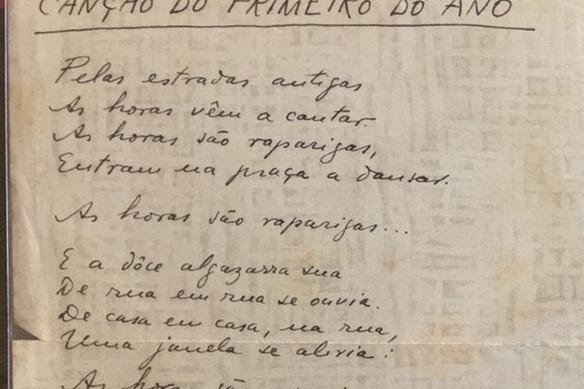 CANÇÃO DO PRIMEIRO DO ANO
Pelas estradas antigas
As horas vêm a cantar.
As horas são raparigas,
Entram na praça a dansar.
As horas são raparigas...
E a dôce algazarra sua
De rua em rua se ouvia.
De casa em casa, na rua,
Uma janela se abria:
As horas são